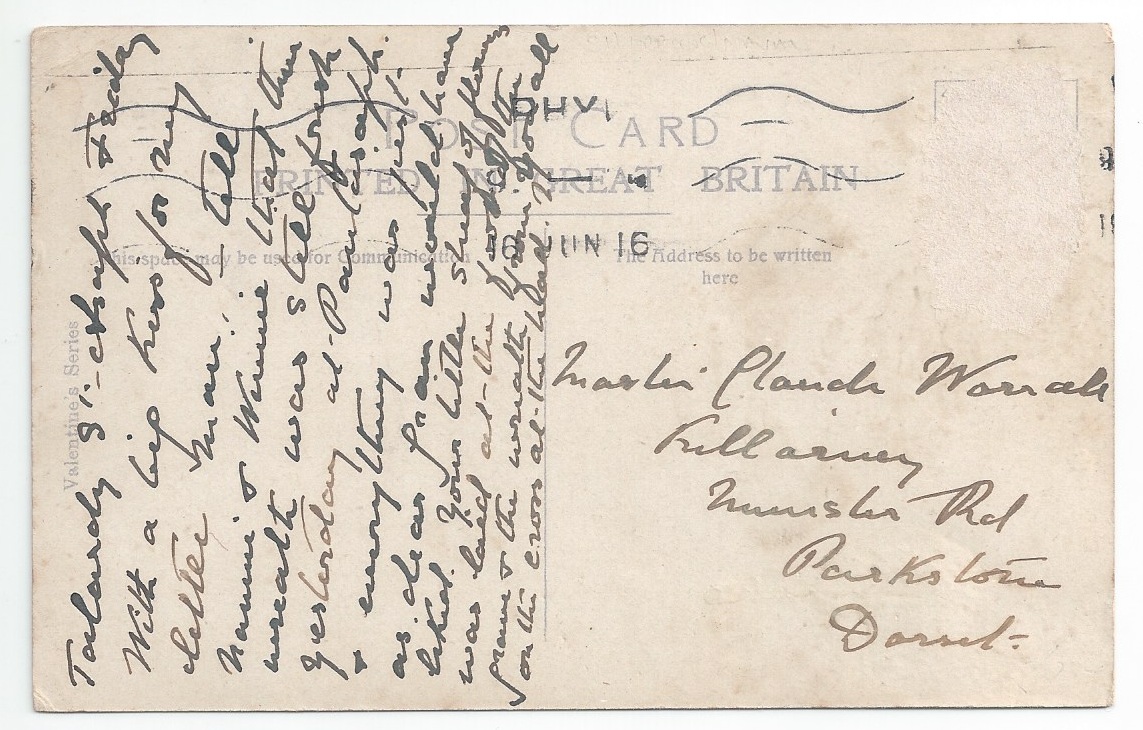 POST CARD
PRINTED IN GREAT BRITAIN
RHYL
16 JUN 16
This space may be used for Communication
The Address to be written
here
Valentine's Series
Friday
With a big kiss for my
little man. Tell
Nannie & Winnie that the
wreath was still fresh
yesterday at Pantasaph
& everything was just
as dear Fran would have
liked. Your little sheaf of flowers
was laid at the foot of the
grave & the wreath from you all
on the cross at the head.
Master Claude Worrall
Killarney
Munster Rd
Parkstone
Dorset